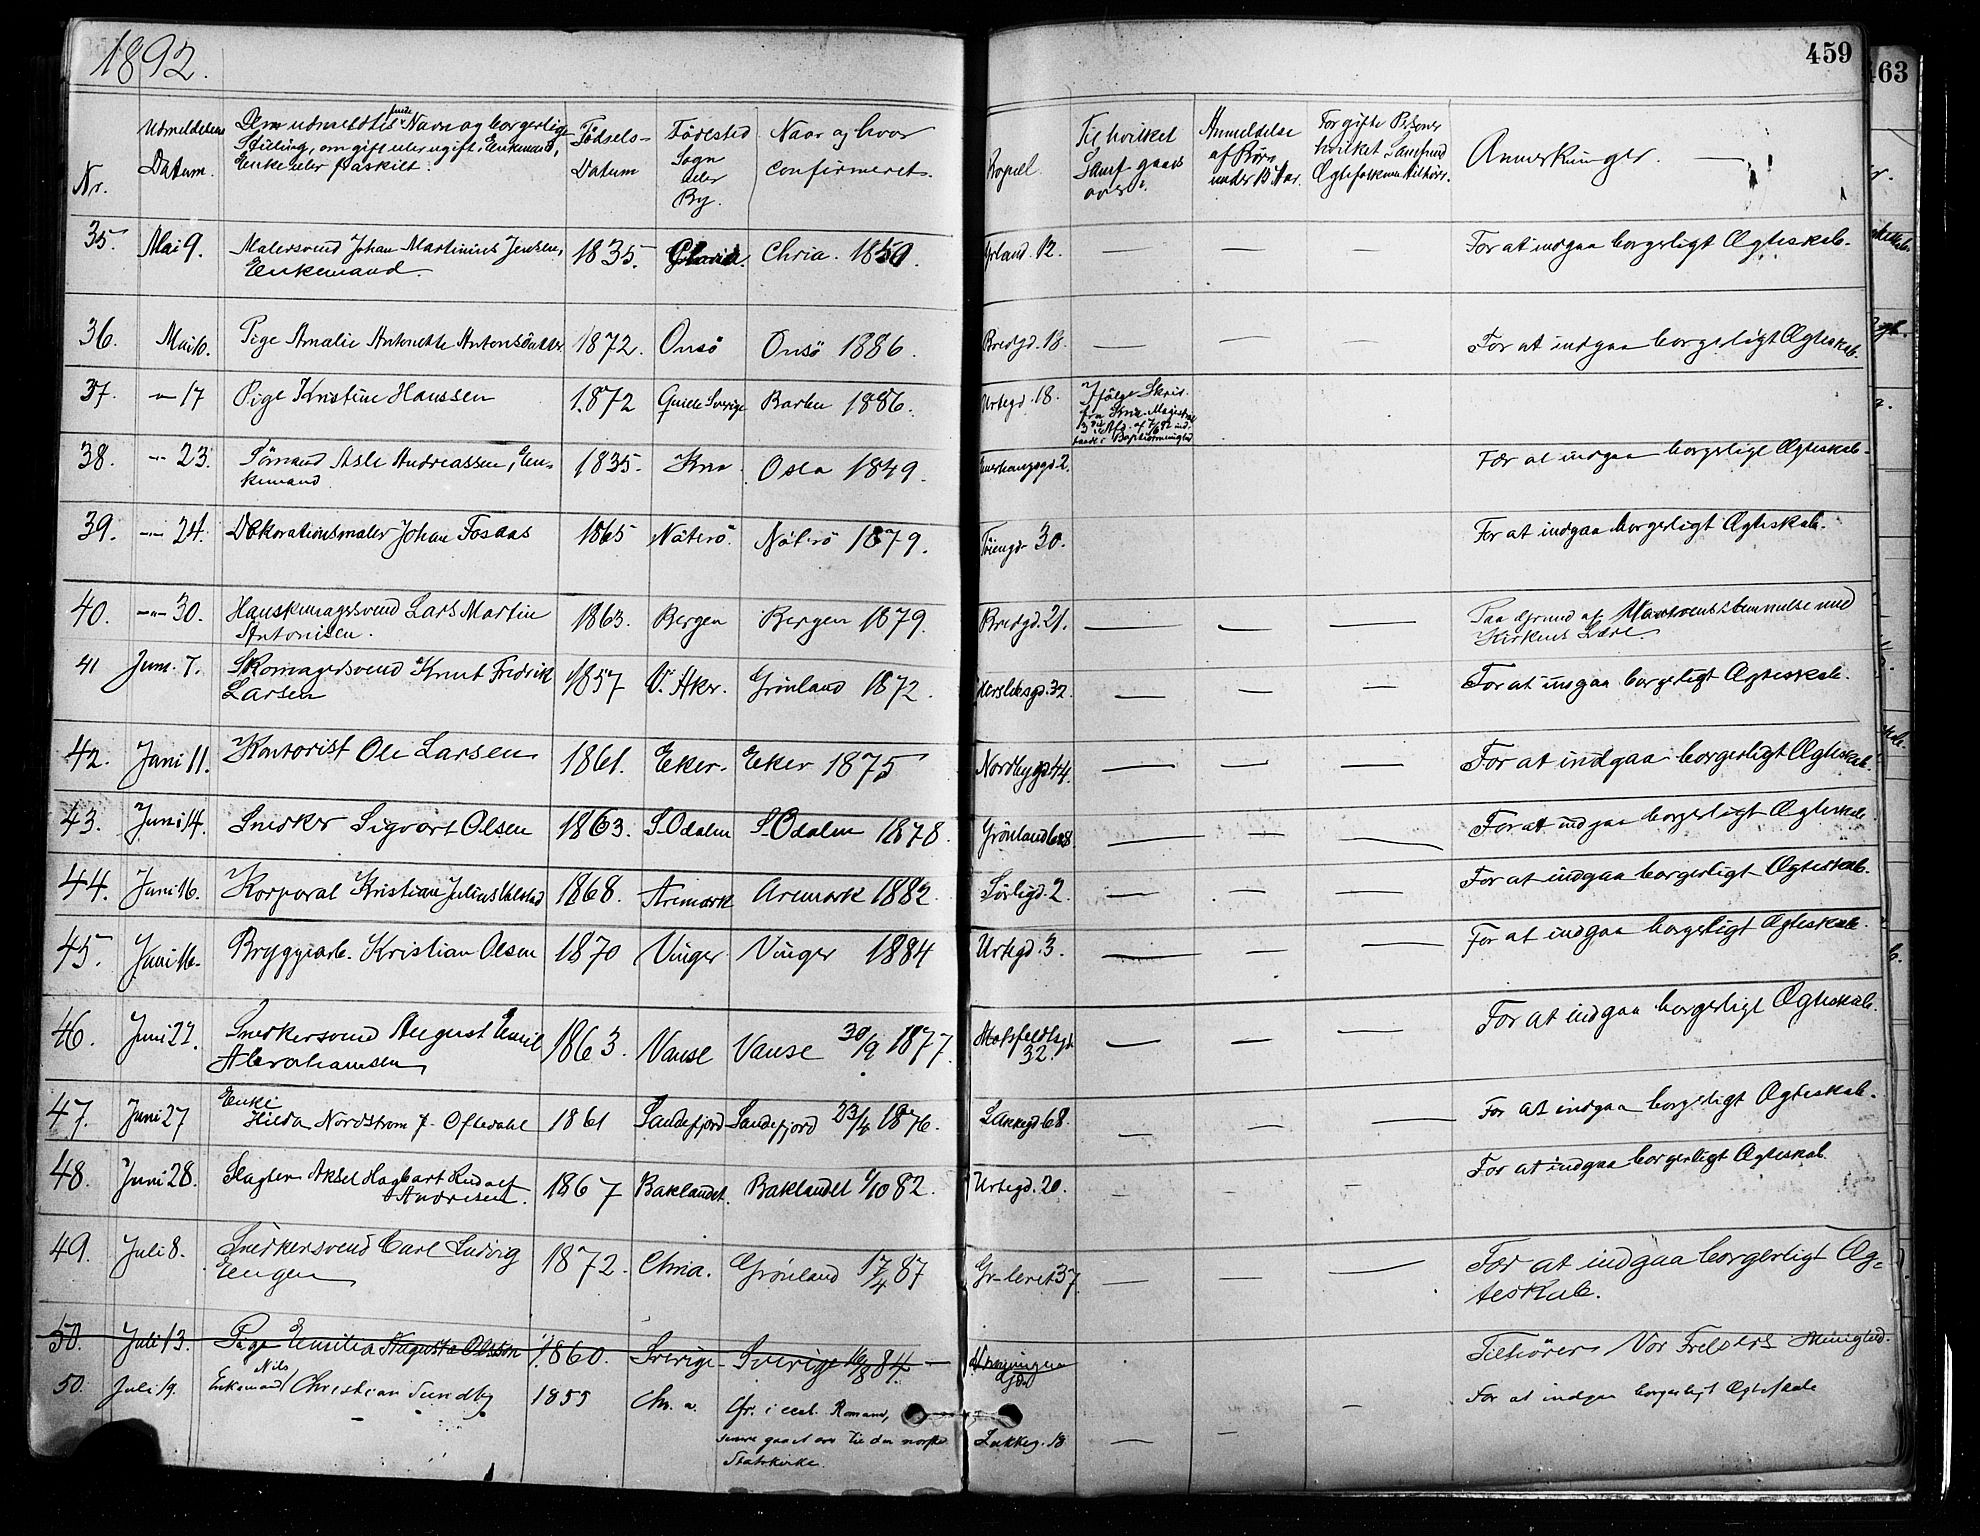 1892.
459
463
Nr.
Udmeldelsens Datum.
Den udmeldtes fulde Navn og borgerlige Stilling, om gift eller ugift, Enkemand, Enke eller fraskilt.
Fødsels-Datum
Fødested Sogn eller By.
Naar og hvor confirmeret.
Bopæl.
Til hvilket Samf. gaaet over?
Anmeldelse af Børn under 15 Aar.
For gifte Personer hvilket Samfund Ægtefællen tilhører.
Anmerkninger.
35. Mai 9. Malersvend Johan Martinius Jensen, Enkemand. 1835. Chria. 1850. Grland. 12. — — — For at indgaa borgerligt Ægteskab.
36. Mai 10. Pige Amalie Antonette Antonsdatter 1872. Onsö Onsö 1886. Bredgd. 18. — — — For at indgaa borgerligt Ægteskab.
37. -"- 17 Pige Kristine Hanssen 1872 Sverige 1886. Urtegd. 18. Ifølge Skriv. fra Kria. Magistrat
38. -"- 23. Sömand Asle Andreassen, Enkemand 1835. Kria Oslo 1849. 2. For at indgaa borgerligt Ægteskab.
39. -"- 24. Dekorationsmaler Johan Fosaas 1865 Nöterö. Nöterö 1879. Töiengd 30. For at indgaa borgerligt Ægteskab.
40. -"- 30. Hanskemagersvend Lars Martin Antonisen. 1863. Bergen Bergen 1879. Bredgd. 21. — — — Paa Grund af Uoverensstemmelse med Kirkens Lære
41 Juni. 7. Skomagersvend Knut Fredrik Larsen 1857 V. Aker. Grönland 1872. Herslebsgd. 32. — — — For at indgaa borgerligt Ægteskab.
42. Juni 11. Kontorist Ole Larsen 1861. Eker. Eker 1875 Nordbygd 44. — — — For at indgaa borgerligt Ægteskab.
43. Juni 14. Snedker Sigvart Olsen 1863. S. Odalen S. Odalen 1878. Grönland — — — For at indgaa borgerligt Ægteskab
44. Juni 16. Korporal Kristian Julius 1868. Aremark Aremark 1882. Sörligd. 2 — — — For at indgaa borgerligt Ægteskab.
45. Juni 16. Bryggeriarb. Kristian Olsen 1870 Vinger Vinger 1884 Urtegd. 3. — — — For at indgaa borgerligt Ægteskab.
46. Juni 22. Snedkersvend August Emil Abrahamsen 1863. Vanse Vanse 30/9 1877. Motzfeldtsgd. 32. — — — For at indgaa borgerligt Ægteskab.
47. Juni 27 Enke Hilda Nordstrom f. Oftedahl 1861 Sandefjord Sandefjord 23/4 1876. Lakkegd. 68. — — — For at indgaa borgerligt Ægteskab.
48. Juni 28. Slagter Aksel Hagbart Rudolf Andresen. 1867 Baklandet. Baklandet 1/10 82. Urtegd. 20. — — — For at indgaa borgerligt Ægteskab
49. Juli 8. Snedkersvend Carl Ludvig Engen 1872. Chria. Grönland 17/4 87 Gr-leret 37. — — — For at indgaa borgerligt Ægteskab.
50. Juli 13. Pige Emilia Augusta Olsson 1860. Sverige Sverige 84. — Tilhörer Vor Frelsers Menighed.
50. Juli 19. Enkemand Nils Christian Sundby 1855 Chr.a. Gr. i senere gaaet over til den norske Statskirke. Lakkeg. 18 — — — For at indgaa borgerligt Ægteskab